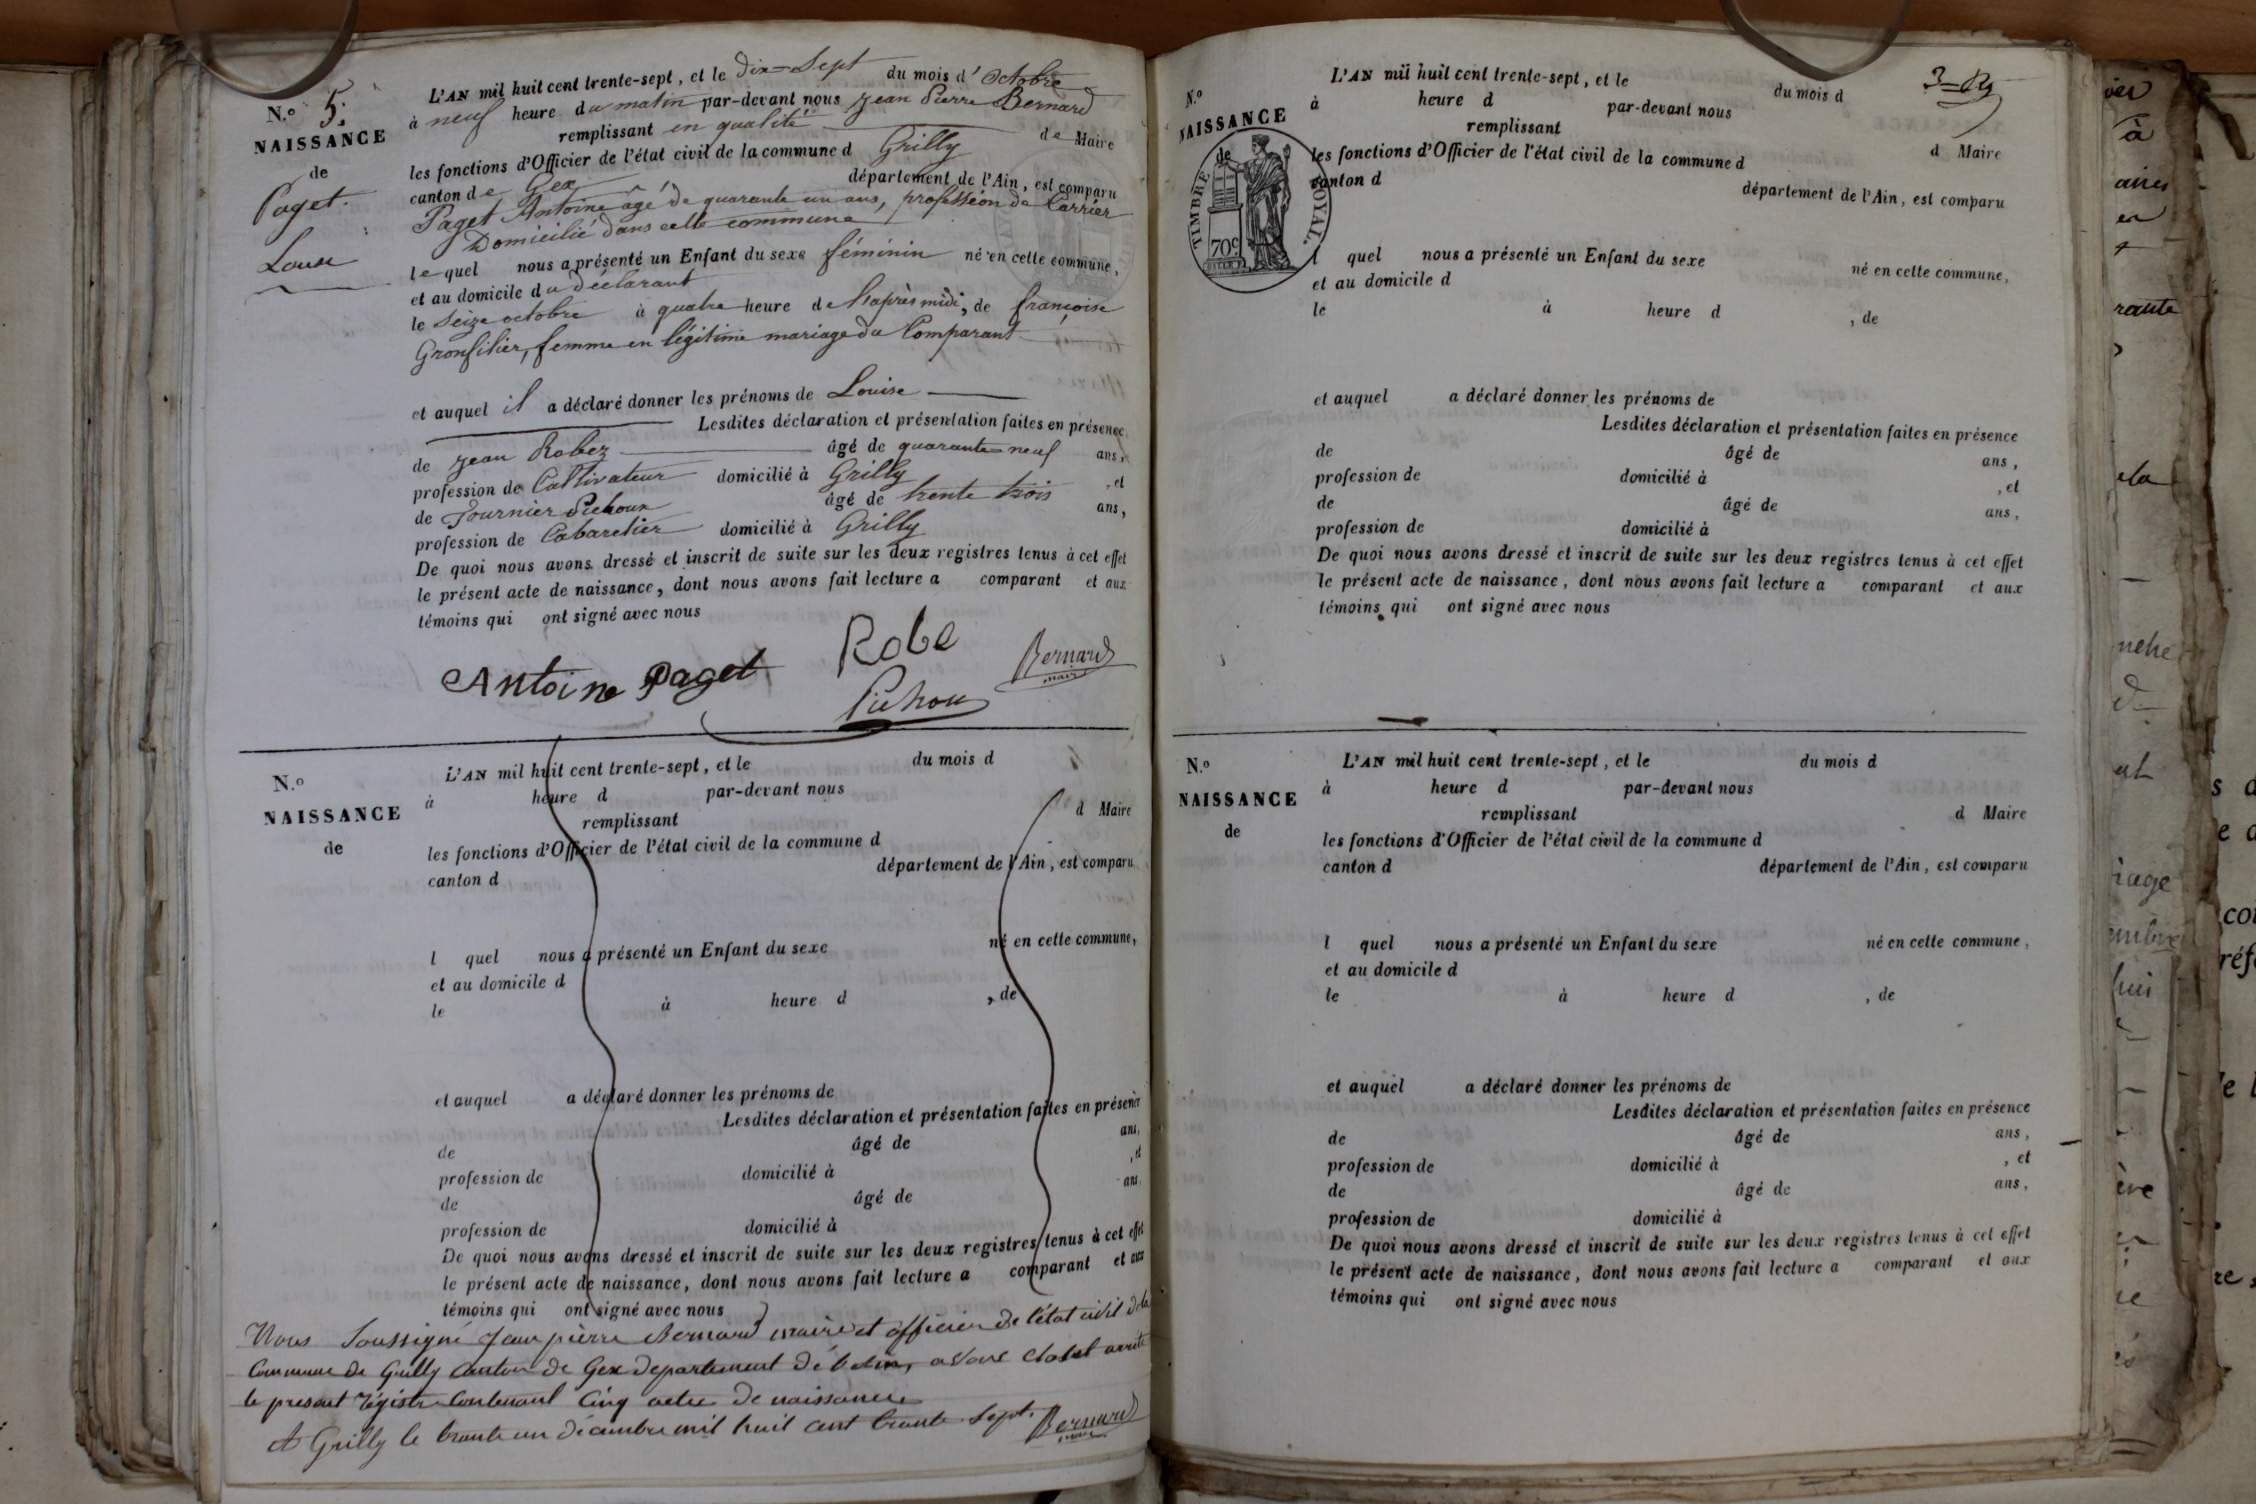 N.º 5.
NAISSANCE
de
Paget.
Louise
L'AN mil huit cent trente-sept, et le dix=Sept du mois d'octobre
à neuf heure du matin par-devant nous Jean Pierre Bernard
remplissant en qualité de Maire
les fonctions d'Officier de l'état civil de la commune d Grilly
canton de Gex département de l'Ain, est comparu
Paget Antoine âgé de quarante un ans, profession de Carrier
Domicilié dans cette commune
lequel nous a présenté un Enfant du sexe féminin né en cette commune,
et au domicile du déclarant
le Seize octobre à quatre heure de l'après midi, de françoise
Gronfilier, femme en légitime mariage du Comparant
et auquel il a déclaré donner les prénoms de Louise
Lesdites déclaration et présentation faites en présence
de Jean Robez âgé de quarante=neuf ans,
profession de Cultivateur domicilié à Grilly , et
de Fournier Pichoux âgé de trente trois ans,
profession de Cabaretier domicilié à Grilly
De quoi nous avons dressé et inscrit de suite sur les deux registres tenus à cet effet
le présent acte de naissance, dont nous avons fait lecture a comparant et aux
témoins qui ont signé avec nous
Antoine Paget Robe Bernard
maire
Pichou
N.º
NAISSANCE
de
L'AN mil huit cent trente-sept, et le du mois d
à heure d par-devant nous
remplissant d Maire
les fonctions d'Officier de l'état civil de la commune d
canton d département de l'Ain, est comparu
l quel nous a présenté un Enfant du sexe né en cette commune,
et au domicile d
le à heure d , de
et auquel a déclaré donner les prénoms de
Lesdites déclaration et présentation faites en présence
de âgé de ans,
profession de domicilié à , et
de âgé de ans,
profession de domicilié à
De quoi nous avons dressé et inscrit de suite sur les deux registres tenus à cet effet
le présent acte de naissance, dont nous avons fait lecture a comparant et aux
témoins qui ont signé avec nous
Nous Soussigné Jean pierre Bernard maire et officier de l'état civil de la
Commune de Grilly Canton de Gex departement de l'ain, avons clos et arreté
le present régistre Contenant Cinq actes de naissances
A Grilly le trante un décembre mil huit cent trante Sept. Bernard
maire
N.º
NAISSANCE
de
TIMBRE ROYAL.
70c
L'AN mil huit cent trente-sept, et le du mois d
à heure d par-devant nous
remplissant d Maire
les fonctions d'Officier de l'état civil de la commune d
canton d département de l'Ain, est comparu
l quel nous a présenté un Enfant du sexe né en cette commune,
et au domicile d
le à heure d , de
et auquel a déclaré donner les prénoms de
Lesdites déclaration et présentation faites en présence
de âgé de ans,
profession de domicilié à , et
de âgé de ans,
profession de domicilié à
De quoi nous avons dressé et inscrit de suite sur les deux registres tenus à cet effet
le présent acte de naissance, dont nous avons fait lecture a comparant et aux
témoins qui ont signé avec nous
N.º
NAISSANCE
de
L'AN mil huit cent trente-sept, et le du mois d
à heure d par-devant nous
remplissant d Maire
les fonctions d'Officier de l'état civil de la commune d
canton d département de l'Ain, est comparu
l quel nous a présenté un Enfant du sexe né en cette commune,
et au domicile d
le à heure d , de
et auquel a déclaré donner les prénoms de
Lesdites déclaration et présentation faites en présence
de âgé de ans,
profession de domicilié à , et
de âgé de ans,
profession de domicilié à
De quoi nous avons dressé et inscrit de suite sur les deux registres tenus à cet effet
le présent acte de naissance, dont nous avons fait lecture a comparant et aux
témoins qui ont signé avec nous